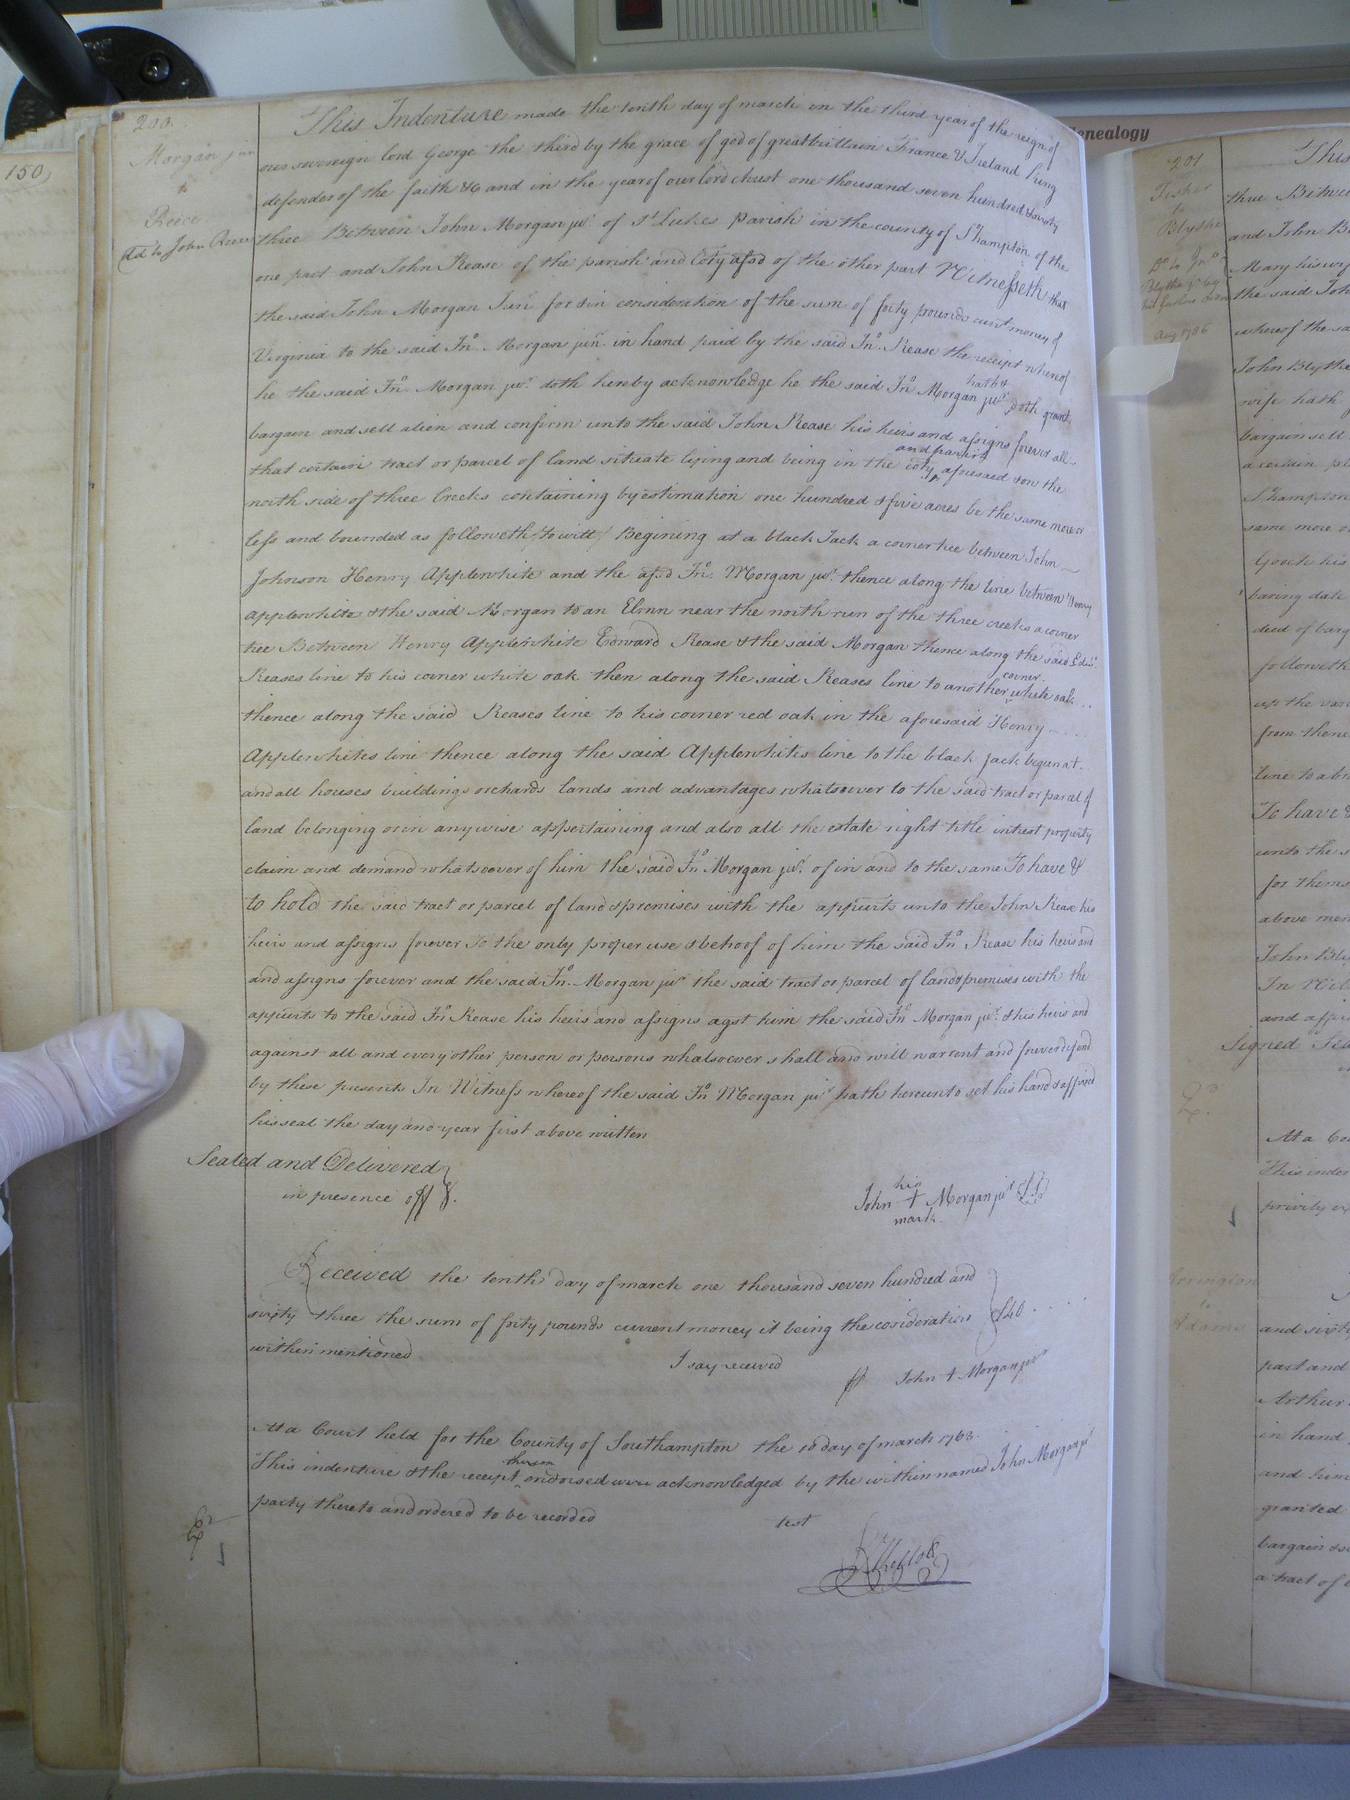 150
200
Morgan jun
to
Reece
Dd to John Reece
This Indenture made the tenth day of march in the third year of the reign of
our sovereign lord George the third by the grace of god of greatbrittain France & Ireland King
defender of the faith &c and in the year of our lord christ one thousand seven hundred & sixty
three Between John Morgan junr of St Lukes Parish in the county of S'hampton of the
one part and John Rease of the parish and Coty afsd of the other part Witnesseth that
the said John Morgan Junr for & in consideration of the sum of forty pounds curt money of
Virginia to the said Jno. Morgan junr. in hand paid by the said Jno. Rease the receipt whereof
he the said Jno. Morgan junr. doth hereby acknowledge he the said Jno. Morgan junr. hath & doth grant
bargain and sell alien and confirm unto the said John Rease his heirs and assigns forever all
that certain tract or parcel of land situate lying and being in the coty and parish aforesaid & on the
north side of three Creeks containing by estimation one hundred & five acres be the same more or
less and bounded as followeth to witt Begining at a black Jack a corner tree between John
Johnson Henry Applewhite and the afsd Jno. Morgan junr. thence along the line between Henry
Applewhite & the said Morgan to an Elmn near the north run of the three creeks a corner
tree Between Henry Applewhite Edward Rease & the said Morgan thence along the said Edwd.
Reases line to his corner white oak then along the said Reases line to another corner white oak
thence along the said Reases line to his corner red oak in the aforesaid Henry
Applewhites line thence along the said Applewhites line to the black jack begun at
and all houses buildings orchards lands and advantages whatsoever to the said tract or parcel of
land belonging or in anywise appertaining and also all the estate right title intrest property
claim and demand whatsoever of him the said Jno Morgan junr. of in and to the same To have &
to hold the said tract or parcel of land & premises with the appurts unto the John Rease his
heirs and assigns forever To the only proper use & behoof of him the said Jno. Rease his heirs and
and assigns forever and the said Jno. Morgan junr the said tract or parcel of land & premises with the
appurts to the said Jno. Rease his heirs and assigns agst him the said Jno. Morgan junr. & his heirs and
against all and every other person or persons whatsoever shall and will warrent and forever defend
by these presents In Witness whereof the said Jno Morgan junr hath hereunto set his hand & affixed
his seal the day and year first above written
Sealed and Delivered
in presence off
his
John + Morgan junr LS
mark
Received the tenth day of march one thousand seven hundred and
sixty three the sum of forty pounds current money it being the cosideration £40
within mentioned
I say received
John + Morgan junr
At a Court held for the County of Southampton the 10 day of march 1763.
This indenture & the receipt thereon endorsed were acknowledged by the within named John Morgan junr
party thereto and ordered to be recorded
test
enealogy
201
Fisher
to
Blythe
Aug 1786
This
three Between
and John B
Mary his wif
the said Joh
whereof the sa
John Blythe
wife hath
bargain sell
a certain
S'hampton
same more o
Gooch his
baring date
deed of barg
followeth
up the
from thence
line to a
To have &
unto the s
for thems
above men
John Bly
In Wit
and affix
Signed Sea
At a Co
This inden
privity
to
Adams
and sixty
part and
Arthur
in hand
and
granted
bargain
a tract of